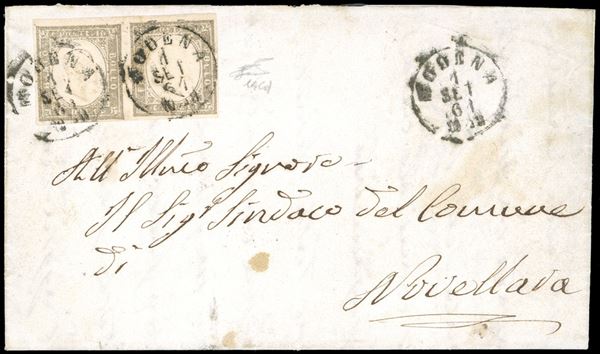 MODENA
1
SET
61
MODENA
1
SET
61
MODENA
1
SET
61
All' Illmo Signore
Il Sigr Sindaco del Comune
di
Novellara